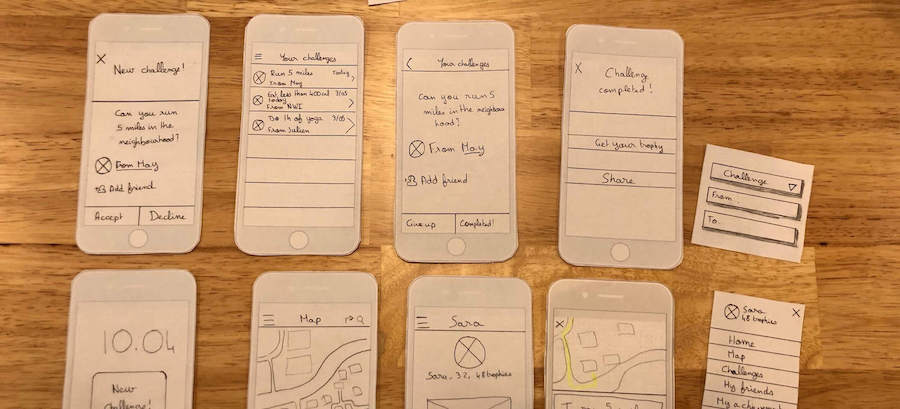 X
New challenge!
Can you run
5 miles in the
neighbourhood?
From May
Add friend
Accept
Decline
Your challenges
Run 5 miles
Today
From May
Eat less than 400cal
9/05
today
From NWI
Do 1h of yoga
9/05
From Julien
Your challenges
Can you run 5
miles in the neighbour
hood?
From May
Add friend
Give up
Completed!
X
Challenge
completed!
Get your trophy
Share
Challenge
From
To
10.04
New
challenge!
Map
Sara
Sara, 32, 48 trophies
X
X
Sara
48 trophies
Home
Map
Challenges
My friends